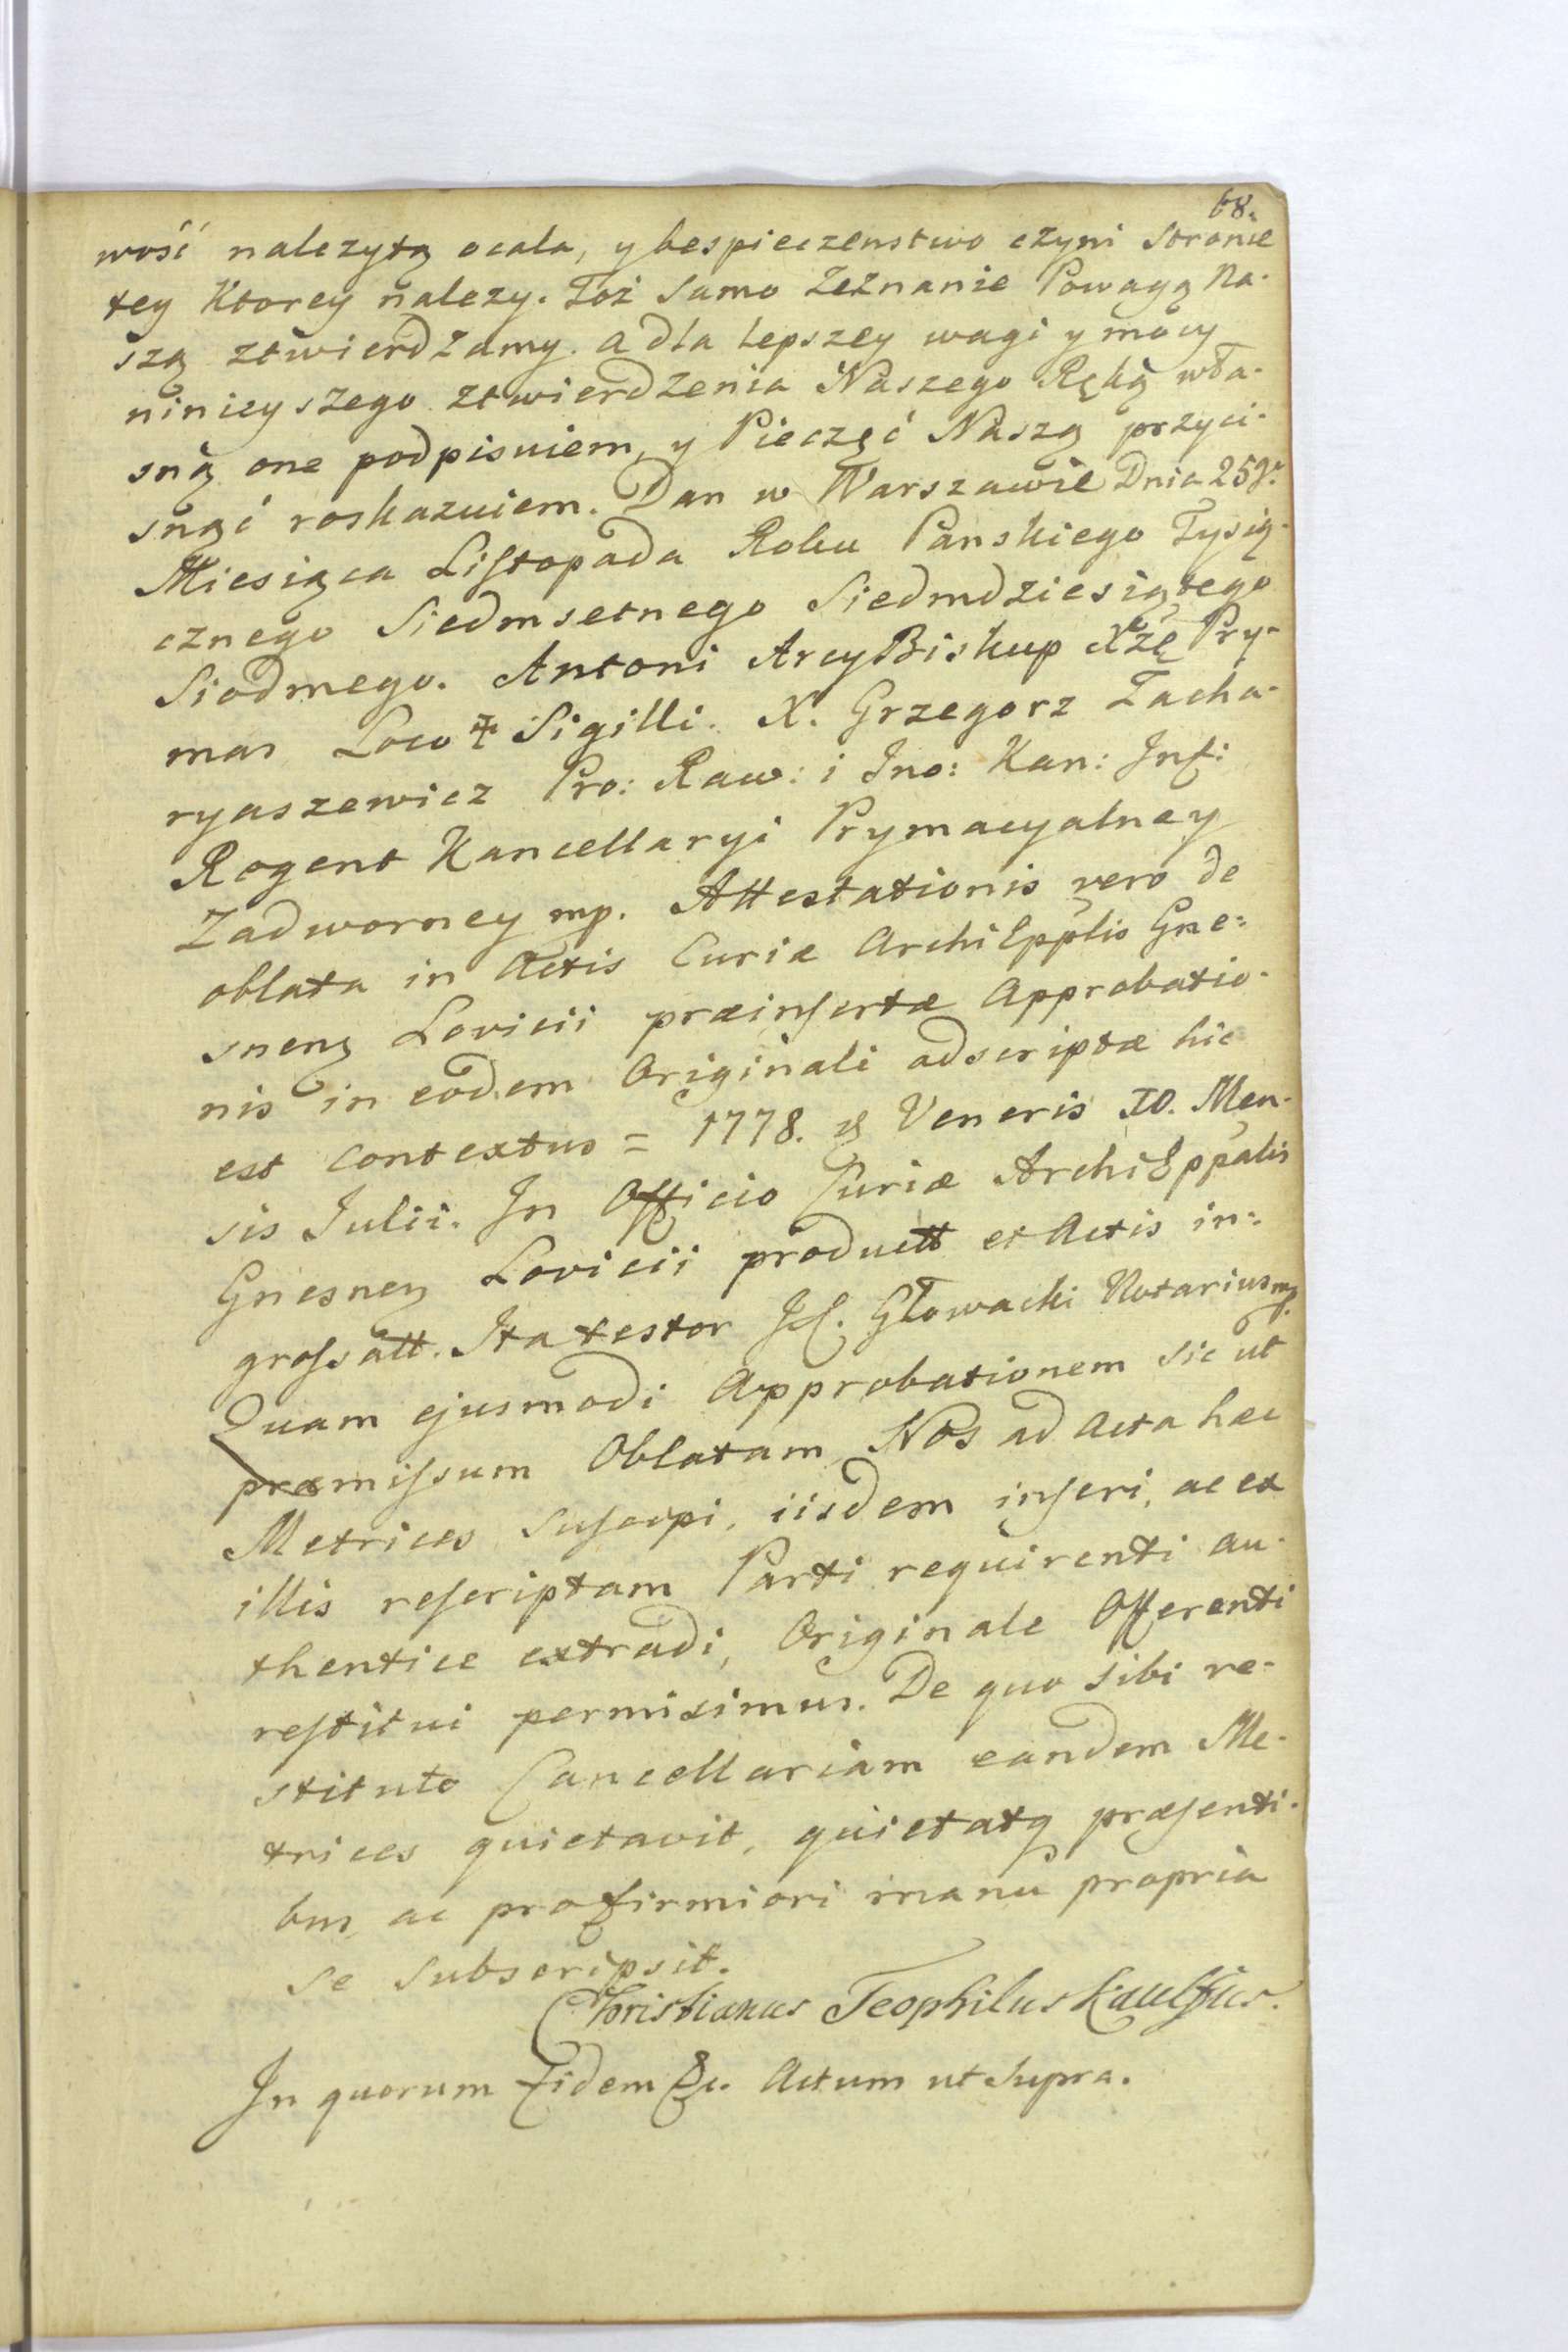 68.
wość nalezytą ocala, y bespieczenstwo czyni Stronie
tey Ktorey nalezy. Toż Samo Zeznanie Powagą Na-
szą ztwierdzamy. a dla lepszey wagi y mocy
ninieyszego ztwierdzenia Naszego Ręką wła-
sną one podpisuiem, y Pieczęć Naszą przyci-
snąć roskazuiem. Dan w Warszawie Dnia 25go
Miesiąca Listopada Roku Panskiego Tysią-
cznego Siedmsetnego Siedmdziesiątego
Siodmego. Antoni ArcyBiskup Xże Pry-
mas Loco ✝ Sigilli. X. Grzegorz Zacha-
ryaszewicz Pro: Raw: i Ino: Kan: Inf:
Regent Kancellaryi Prymacyalney
Zadworney mp. Attestationis vero de
oblata in Actis Curiæ ArchiEpplis Gne-
snen Lovicii præinsertæ Approbatio-
nis in eodem Originali adscriptæ hic
est contextus = 1778. Veneris 10. Men-
sis Julii. In Officio Curiæ ArchiEppalis
Gnesnen Lovicii productt et Actis in-
grossatt. Ita testor Głowacki Notarius mp.
Quam ejusmodi Approbationem sic ut
præmissum Oblatam, Nos ad Acta hæc
Metrices suscepi, iisdem inseri, ac ex
illis rescriptam Parti requirenti au-
thentice extradi, Originale Offerenti
restitui permisimus. De quo sibi re-
stituto Cancellariam eandem Me-
trices quietavit, quietatq præsenti-
bus, ac pro firmiori manu propria
se subscripsit.
Christianus Teophilus
In quorum Fidem &c. Actum ut supra.